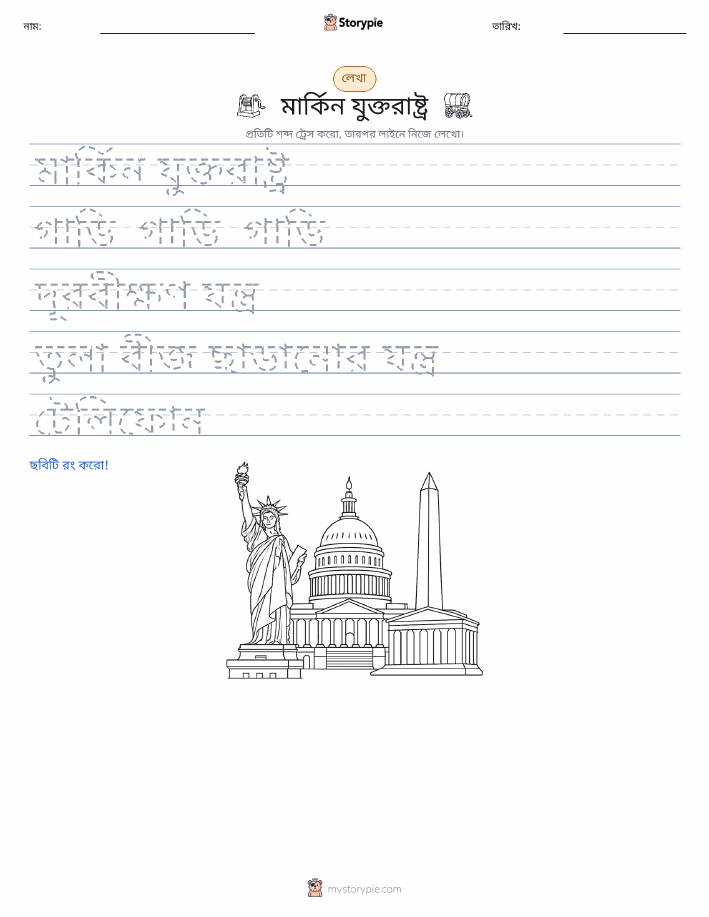 নাম:
Storypie
তারিখ:
লেখা
মার্কিন যুক্তরাষ্ট্র
প্রতিটি শব্দ ট্রেস করো, তারপর লাইনে নিজে লেখো।
মার্কিন যুক্তরাষ্ট্র
গাড়ি গাড়ি গাড়ি
দূরবীক্ষণ যন্ত্র
তুলা বীজ ছাড়ানোর যন্ত্র
টেলিফোন
ছবিটি রং করো!
mystorypie.com